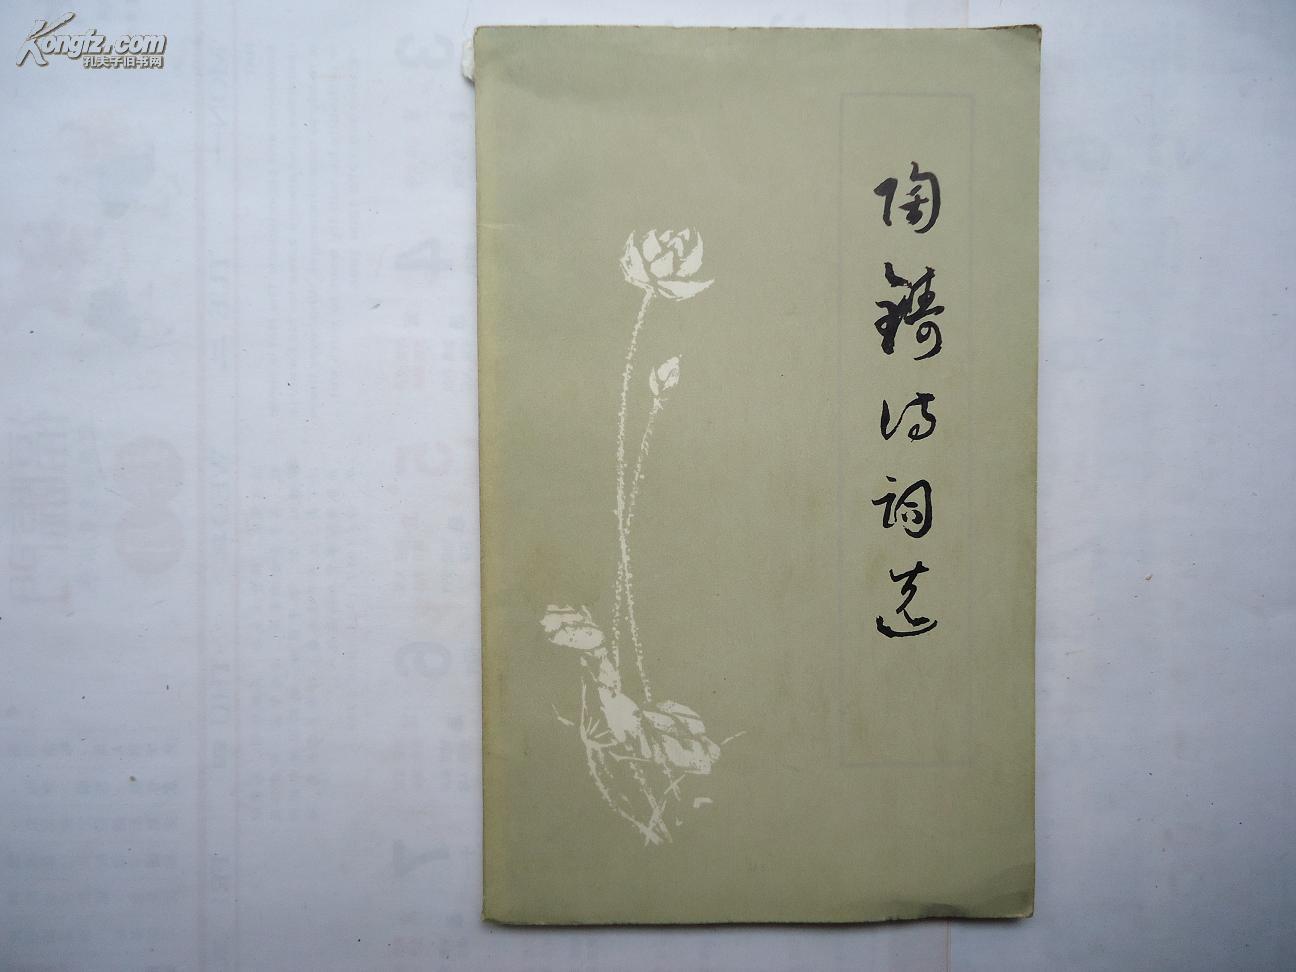 Kongfz.com
孔夫子旧书网
陶鑄诗词选